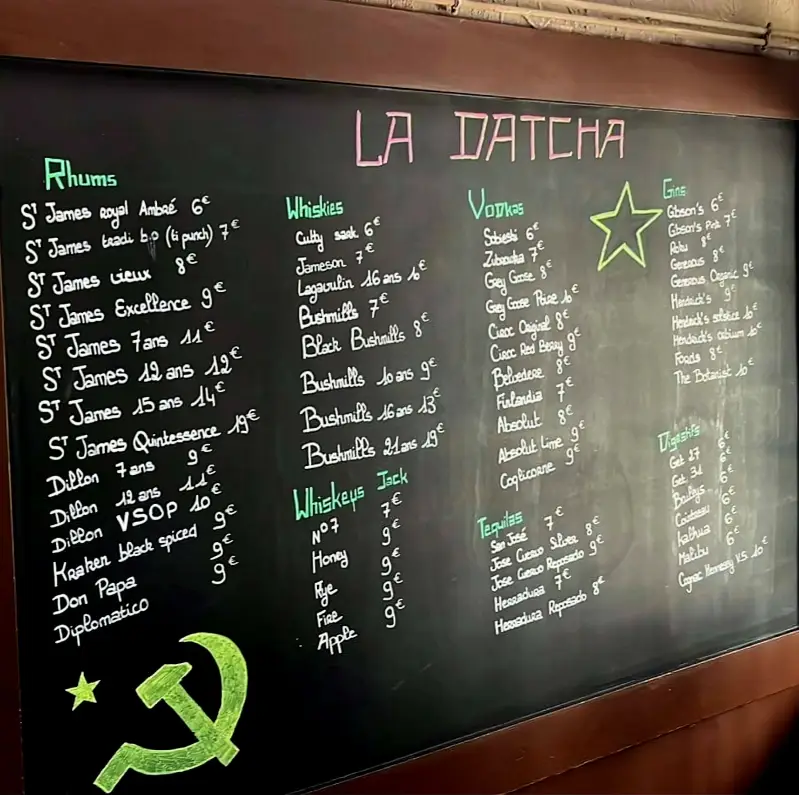 LA DATCHA
Rhums
St James royal Ambré 6€
St James tradi b.o (ti punch) 7€
St James vieux 8€
St James Excellence 9€
St James 7 ans 11€
St James 12 ans 12€
St James 15 ans 14€
St James Quintessence 19€
Dillon 7 ans 9€
Dillon 12 ans 11€
Dillon VSOP 10€
Kraken black spiced 9€
Don Papa 9€
Diplomatico 9€
Whiskies
Cutty sark 6€
Jameson 7€
Lagavulin 16 ans
Bushmills 7€
Black Bushmills 8€
Bushmills 10 ans 9€
Bushmills 16 ans 13€
Bushmills 21 ans 19€
Whiskeys Jack
N°7 7€
Honey 9€
Rye 9€
Fire 9€
Apple 9€
Vodkas
Sobieski 6€
Zubrowka 7€
Grey Goose 8€
Grey Goose Poire
Ciroc Original 8€
Ciroc Red Berry 9€
Belvedere 8€
Finlandia 7€
Absolut 8€
Absolut Lime 9€
Coqlicorne 9€
Tequilas
San José 7€
Jose Cuervo Silver 8€
Jose Cuervo Reposado 9€
Herradura 7€
Herradura Reposado 8€
Gins
Gibson's 6€
Gibson's Pink 7€
Roku 8€
Generous 8€
Generous Organic 9€
Hendrick's 9€
Hendrick's solstice 10€
Hendrick's 10€
Fords 8€
The Botanist 10€
Digestifs
Get 27 6€
Get 31 6€
Baileys 6€
Cointreau 6€
Kalhua 6€
Malibu 6€
Cognac Hennessy V.S. 10€